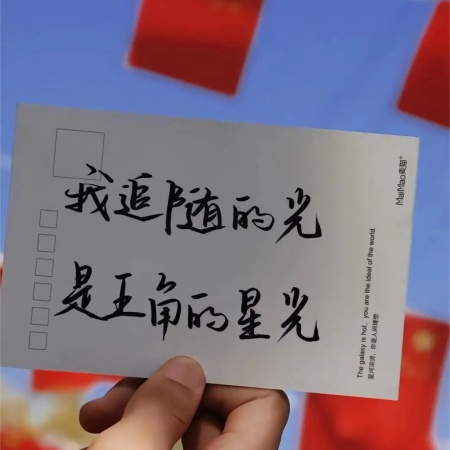 我追随的光
是五角的星光
MaiMao麦猫®
The galaxy is hot, you are the ideal of the world.
星河滚烫，你是人间理想